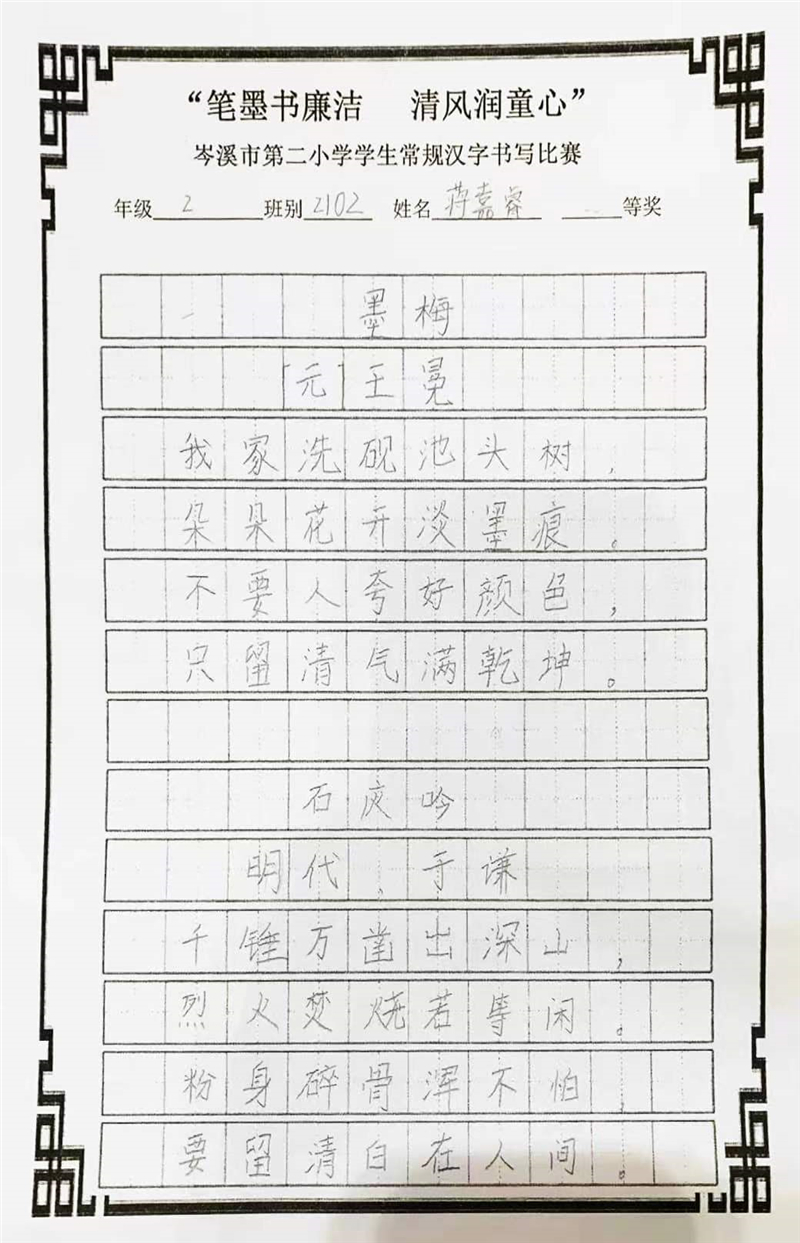 “笔墨书廉洁 清风润童心”
岑溪市第二小学学生常规汉字书写比赛
年级 2 班别 2102 姓名 蒋嘉睿 等奖
墨梅
[元]王冕
我家洗砚池头树，
朵朵花开淡墨痕。
不要人夸好颜色，
只留清气满乾坤。
石灰吟
明代、于谦
千锤万凿出深山，
烈火焚烧若等闲。
粉身碎骨浑不怕，
要留清白在人间。